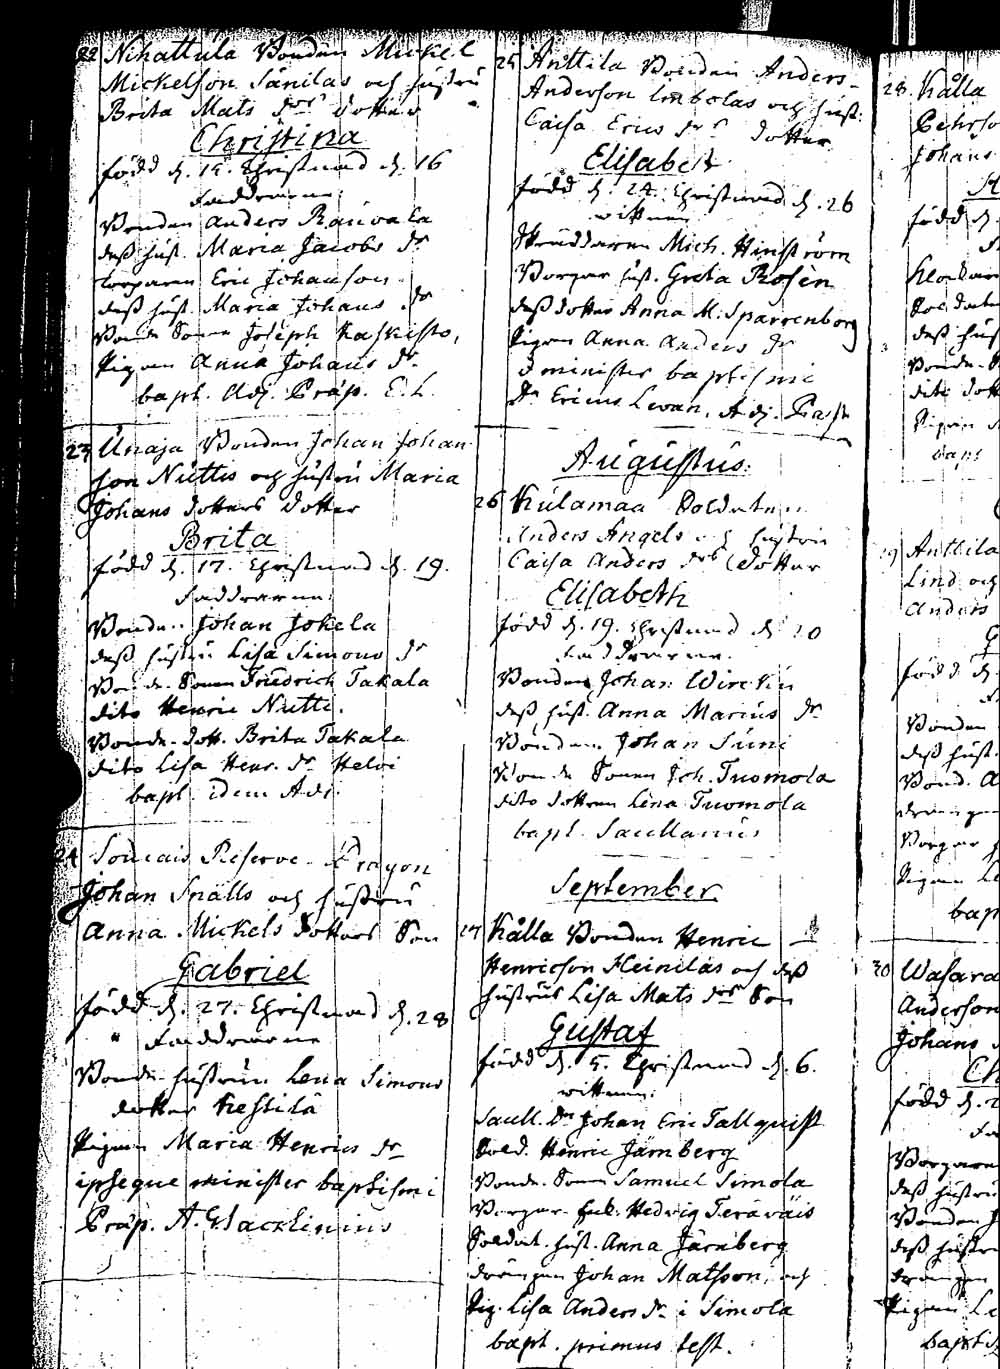 22 Nihattula Bonden Mickel
Mickelson Sänilas och hustru
Brita Mats dors dotter
Christina
född d. 15. Christnad d. 16
Faddrarne
Bonden Anders Rauvala
dess hust. Maria Jacobs dr
Torparen Eric Johansson
dess hust. Maria Johans dr
Bonde Sonen Joseph Kaskisto,
Pigan Anna Johans dr
bapt. Adj. Präp. E. L.
23 Unaja Bonden Johan Johan
son Nuttis och hustru Maria
Johans dotters dotter
Brita
född d. 17. Christnad d. 19.
Faddrarne
Bonden Johan Jokela
dess hustru Lisa Simons dr
Bonde Sonen Friedrich Takala
dito Henric Nutti.
Bonde dott. Brita Takala
dito Lisa Henr. dr Helvi
bapt. idem Adj.
24 Reserve Dragon
Johan Snälls och hustru
Anna Mickels dotters Son
Gabriel
född d. 27. Christnad d. 28
Faddrarne
Bonde hustrun Lena Simons
dotter Kestilä
Pigan Maria Henrics dr
ipseque minister baptismi
Präp. A.
25 Anttila Bonden Anders
Anderson Imbolas och hust.
Caisa Erics drs dotter
Elisabet
född d. 24. Christnad d. 26
wittnen
Skräddaren Mich. Hinström
Borgar hust. Greta Rosèn
dess dotter Anna M. Sparrenborg
Pigan Anna Anders dr
minister baptismi
Dn Ericus Levan, Adj. Past
Augustus.
26 Kulamaa Soldaten
Anders Ängels och hustru
Caisa Anders drs dotter
Elisabeth
född d. 19. Christnad d. 20
Faddrarne.
Bonden Johan
dess hust. Anna Marcus dr
Bonden Johan Suni
Bonde Sonen Joh. Tuomola
dito dottren Lena Tuomola
bapt. Sacellanus
September
27 Kålla Bonden Henric
Henricson Heinilas och dess
hustrus Lisa Mats drs Son
Gustaf
född d. 5. Christnad d. 6.
wittnen:
Sacell. Dn Johan Eric Tallquist
Sold. Henric Järnberg
Bonde Sonen Samuel Simola
Borgar Enk. Hedvig Teräväis
Soldat. hust. Anna Järnberg
drängen Johan Matsson, och
Pig. Lisa Anders dr i Simola
bapt. primus test.
28 Kålla
Pehrso
Johans
född d.
Klockar
Soldate
dess hus
Bonde S
dito dott
Pigan
bapt
29 Anttila
Lind och
Anders
född d.
Bonden
dess hust.
Bond. A
drängen
Borgar
Pigan Le
bap
30 Wasara
Anderson
Johans
Ch
född d. 2
Borgare
dess hustru
Bonden J
dess hustru
drängen
Pigan Le
baptis